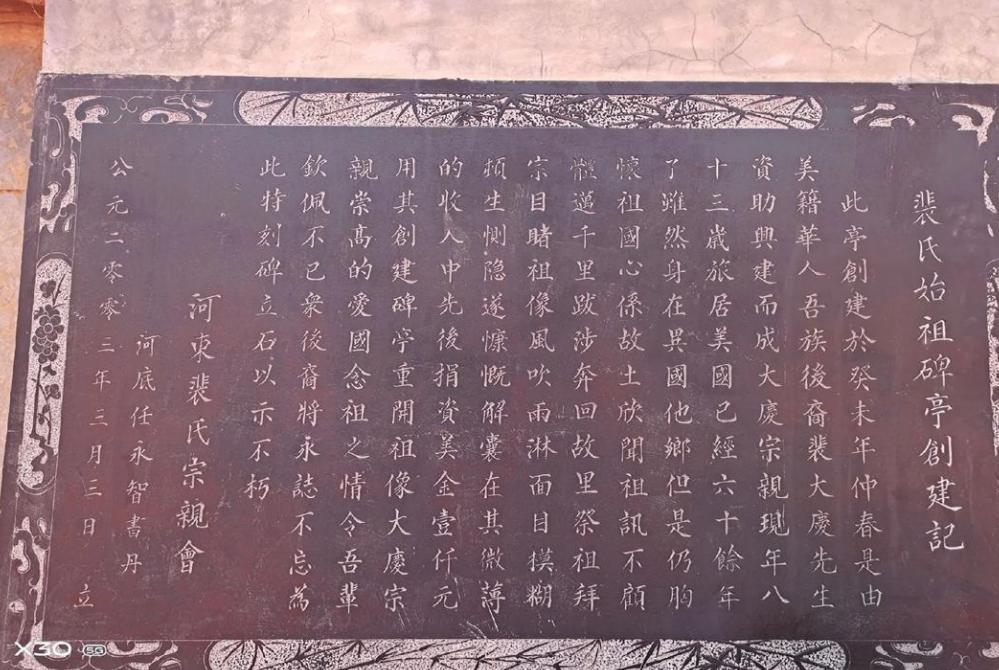 裴氏始祖碑亭創建記
此亭創建於癸未年仲春是由
美籍華人吾族後裔裴大慶先生
資助興建而成大慶宗親現年八
十三歲旅居美國已經六十餘年
了雖然身在異國他鄉但是仍胸
懷祖國心係故土欣聞祖訊不顧
體邁千里跋涉奔回故里祭祖拜
宗目睹祖像風吹雨淋面目模糊
頓生惻隐遂慷慨解囊在其微薄
的收入中先後捐資美金壹仟元
用其創建碑亭重開祖像大慶宗
親崇高的愛國念祖之情令吾輩
欽佩不已衆後裔將永誌不忘為
此特刻碑立石以示不朽
河東裴氏宗親會
河底任永智書丹
公元二零零三年三月三日 立
X30 5G